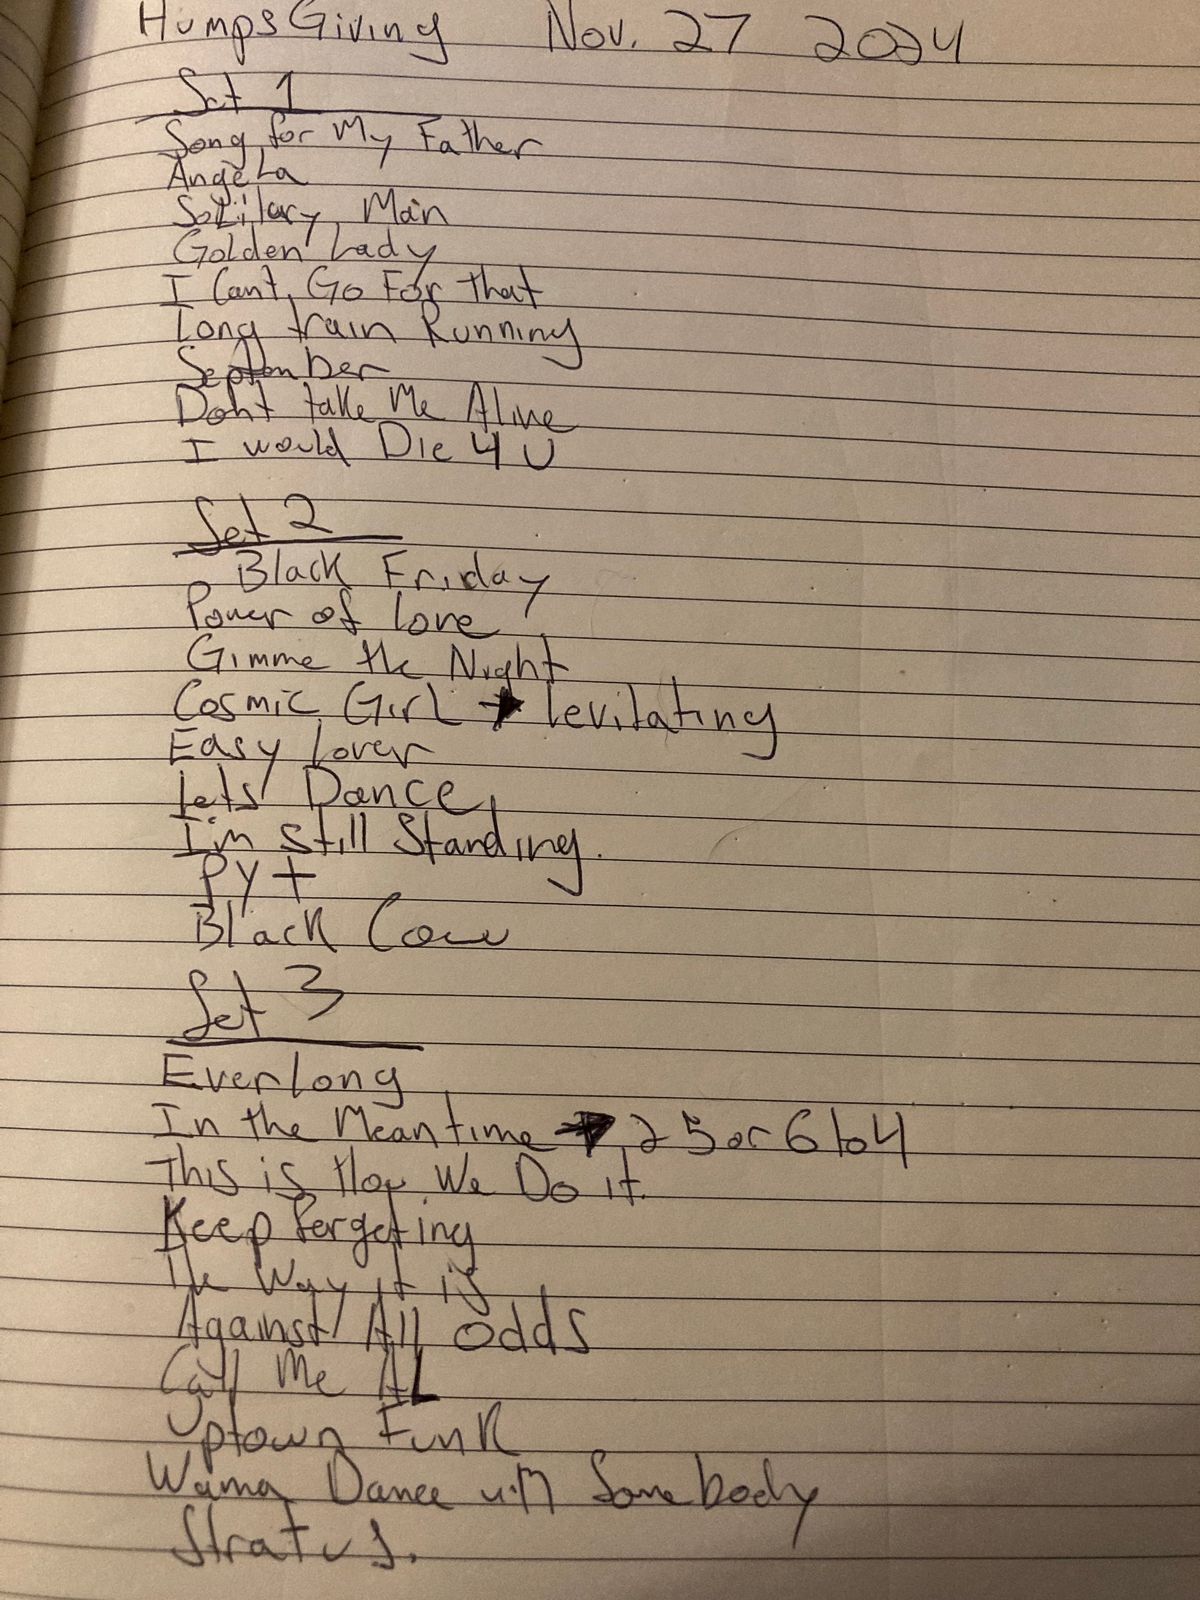 HumpsGiving Nov. 27 2024
Set 1
Song for My Father
Angela
Solilary Man
Golden Lady
I Cant Go For That
Long train Running
September
Dont take Me Alive
I would Die 4 U
Set 2
Black Friday
Power of love
Gimme the Night
Cosmic Girl → levitating
Easy lover
Lets Dance
I'm Still Standing.
PYT
Black Cow
Set 3
Everlong
In the Meantime → 25 or 6 to 4
This is How We Do it.
Keep forgeting
The Way it is
Against All odds
Call Me AL
Uptown Funk
Wanna Dance with Somebody
Stratus.